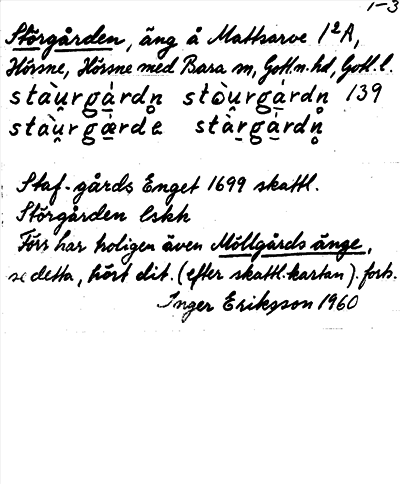 1-3
Störgården, äng å Mattsarve 1²A,
Hörsne, Hörsne med Bara sn, Gotl. n. hd, Gotl. l.
stàu̯rgárdn̥ stòu̯rgá̠rdn 139
stàu̯rgá̠rde stà̠rgá̠rdn̥
Staf-gårds Enget 1699 skattl.
Störgården lskh
Förr har troligen även Möllgårds änge,
se detta, hört dit. (efter skattl.kartan). forts.
Inger Eriksson 1960